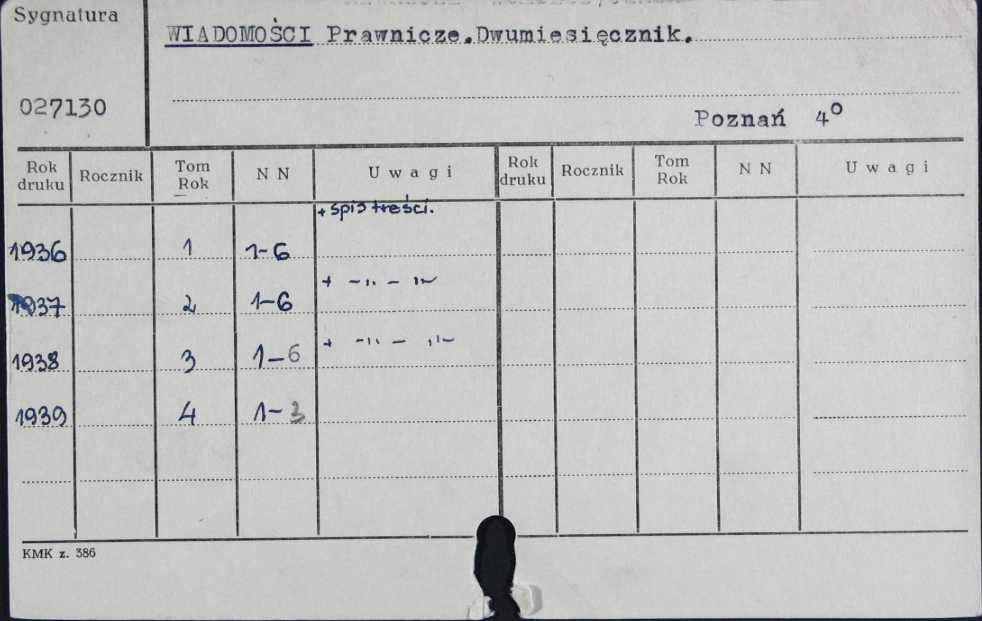 Sygnatura
WIADOMOŚCI Prawnicze.Dwumiesięcznik.
027130
Poznań 4º
Rok druku Rocznik Tom Rok N N Uwagi Rok druku Rocznik Tom Rok N N Uwagi
+ spis treści.
1936 1 1-6
+ -,,- ,,-
1937 2 1-6
+ -,,- ,,-
1938 3 1-6
1939 4 1-3
KMK z. 386